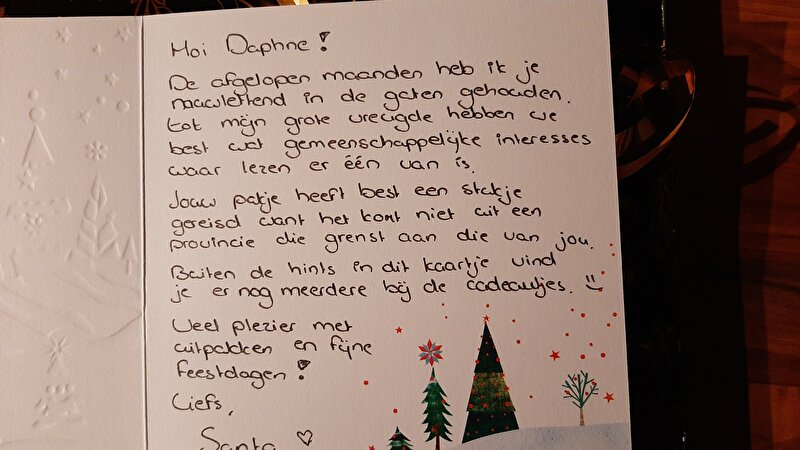 Hoi Daphne!
De afgelopen maanden heb ik je
nauwlettend in de gaten gehouden.
Tot mijn grote vreugde hebben we
best wat gemeenschappelijke interesses
waar lezen er één van is.
Jouw pakje heeft best een stukje
gereisd want het komt niet uit een
provincie die grenst aan die van jou.
Buiten de hints in dit kaartje vind
je er nog meerdere bij de cadeautjes. :)
Veel plezier met
uitpakken en fijne
feestdagen!
Liefs,
Santa ♡